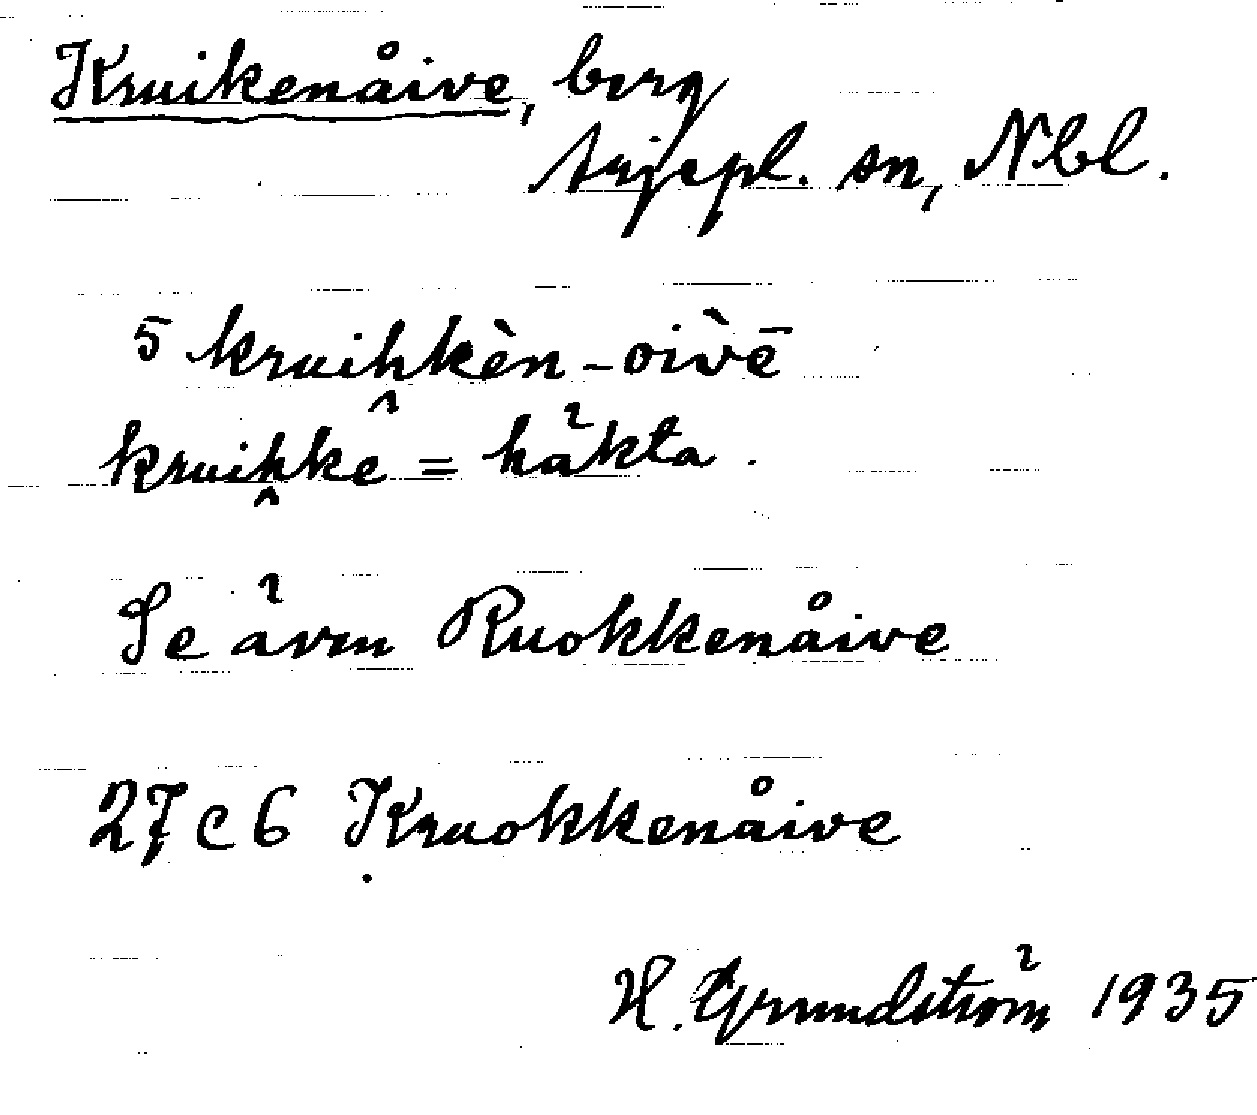 Kruikenåive, berg
Arjepl. sn, Nbl.
5 kruihkèn-oiv̀ē
kruihkē = häkta.
Se även Ruokkenåive
27 c 6 Kruokkenåive
H. Grundström 1935